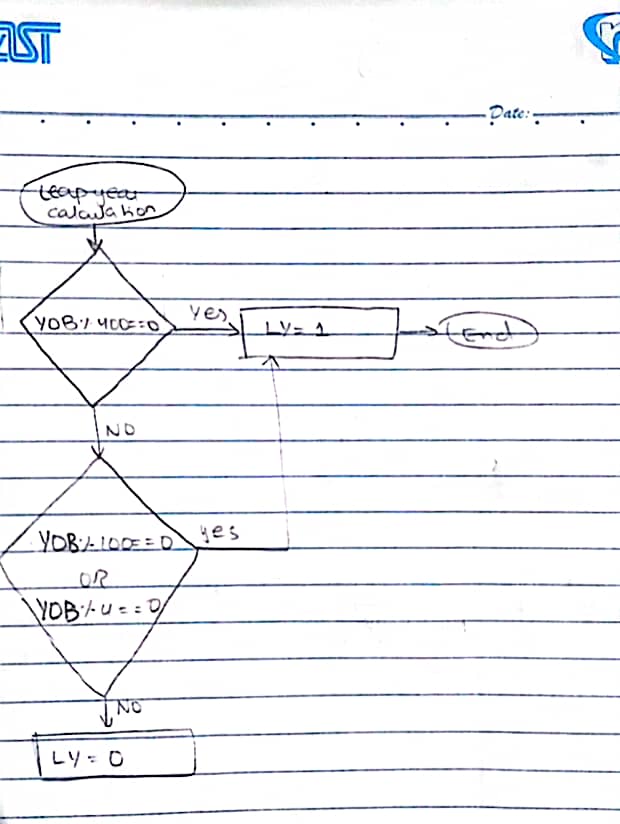 Date:
Leap year
calculation
YOB % 400==0
Yes
LY= 1
End
NO
YOB % 100==0
yes
OR
YOB % 4==0
NO
LY = 0